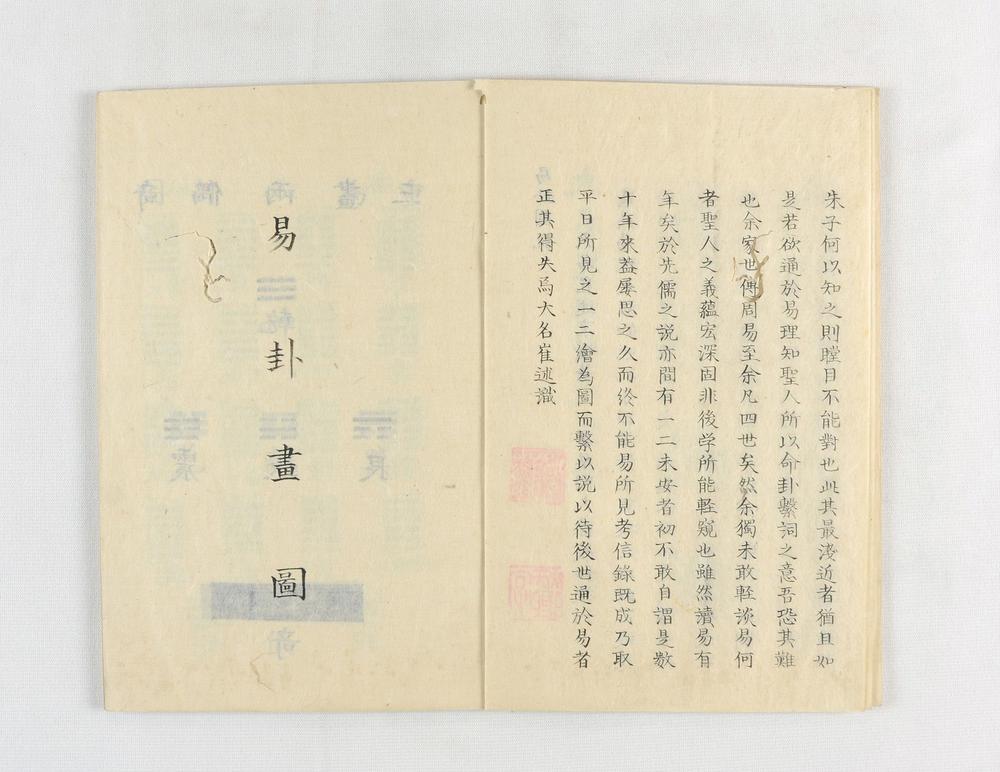 朱子何以知之則瞠目不能對也此其最淺近者猶且如
是若欲通於易理知聖人所以命卦繫詞之意吾恐其難
也余家世傳周易至余凡四世矣然余獨未敢輕談易何
者聖人之義蘊宏深固非後学所能輕窺也雖然讀易有
年矣於先儒之說亦間有一二未安者初不敢自謂是數
十年來蓋屢思之久而終不能易所見考信錄既成乃取
平日所見之一二繪為圖而繫以說以待後世通於易者
正其得失焉大名崔述識
易卦畫圖